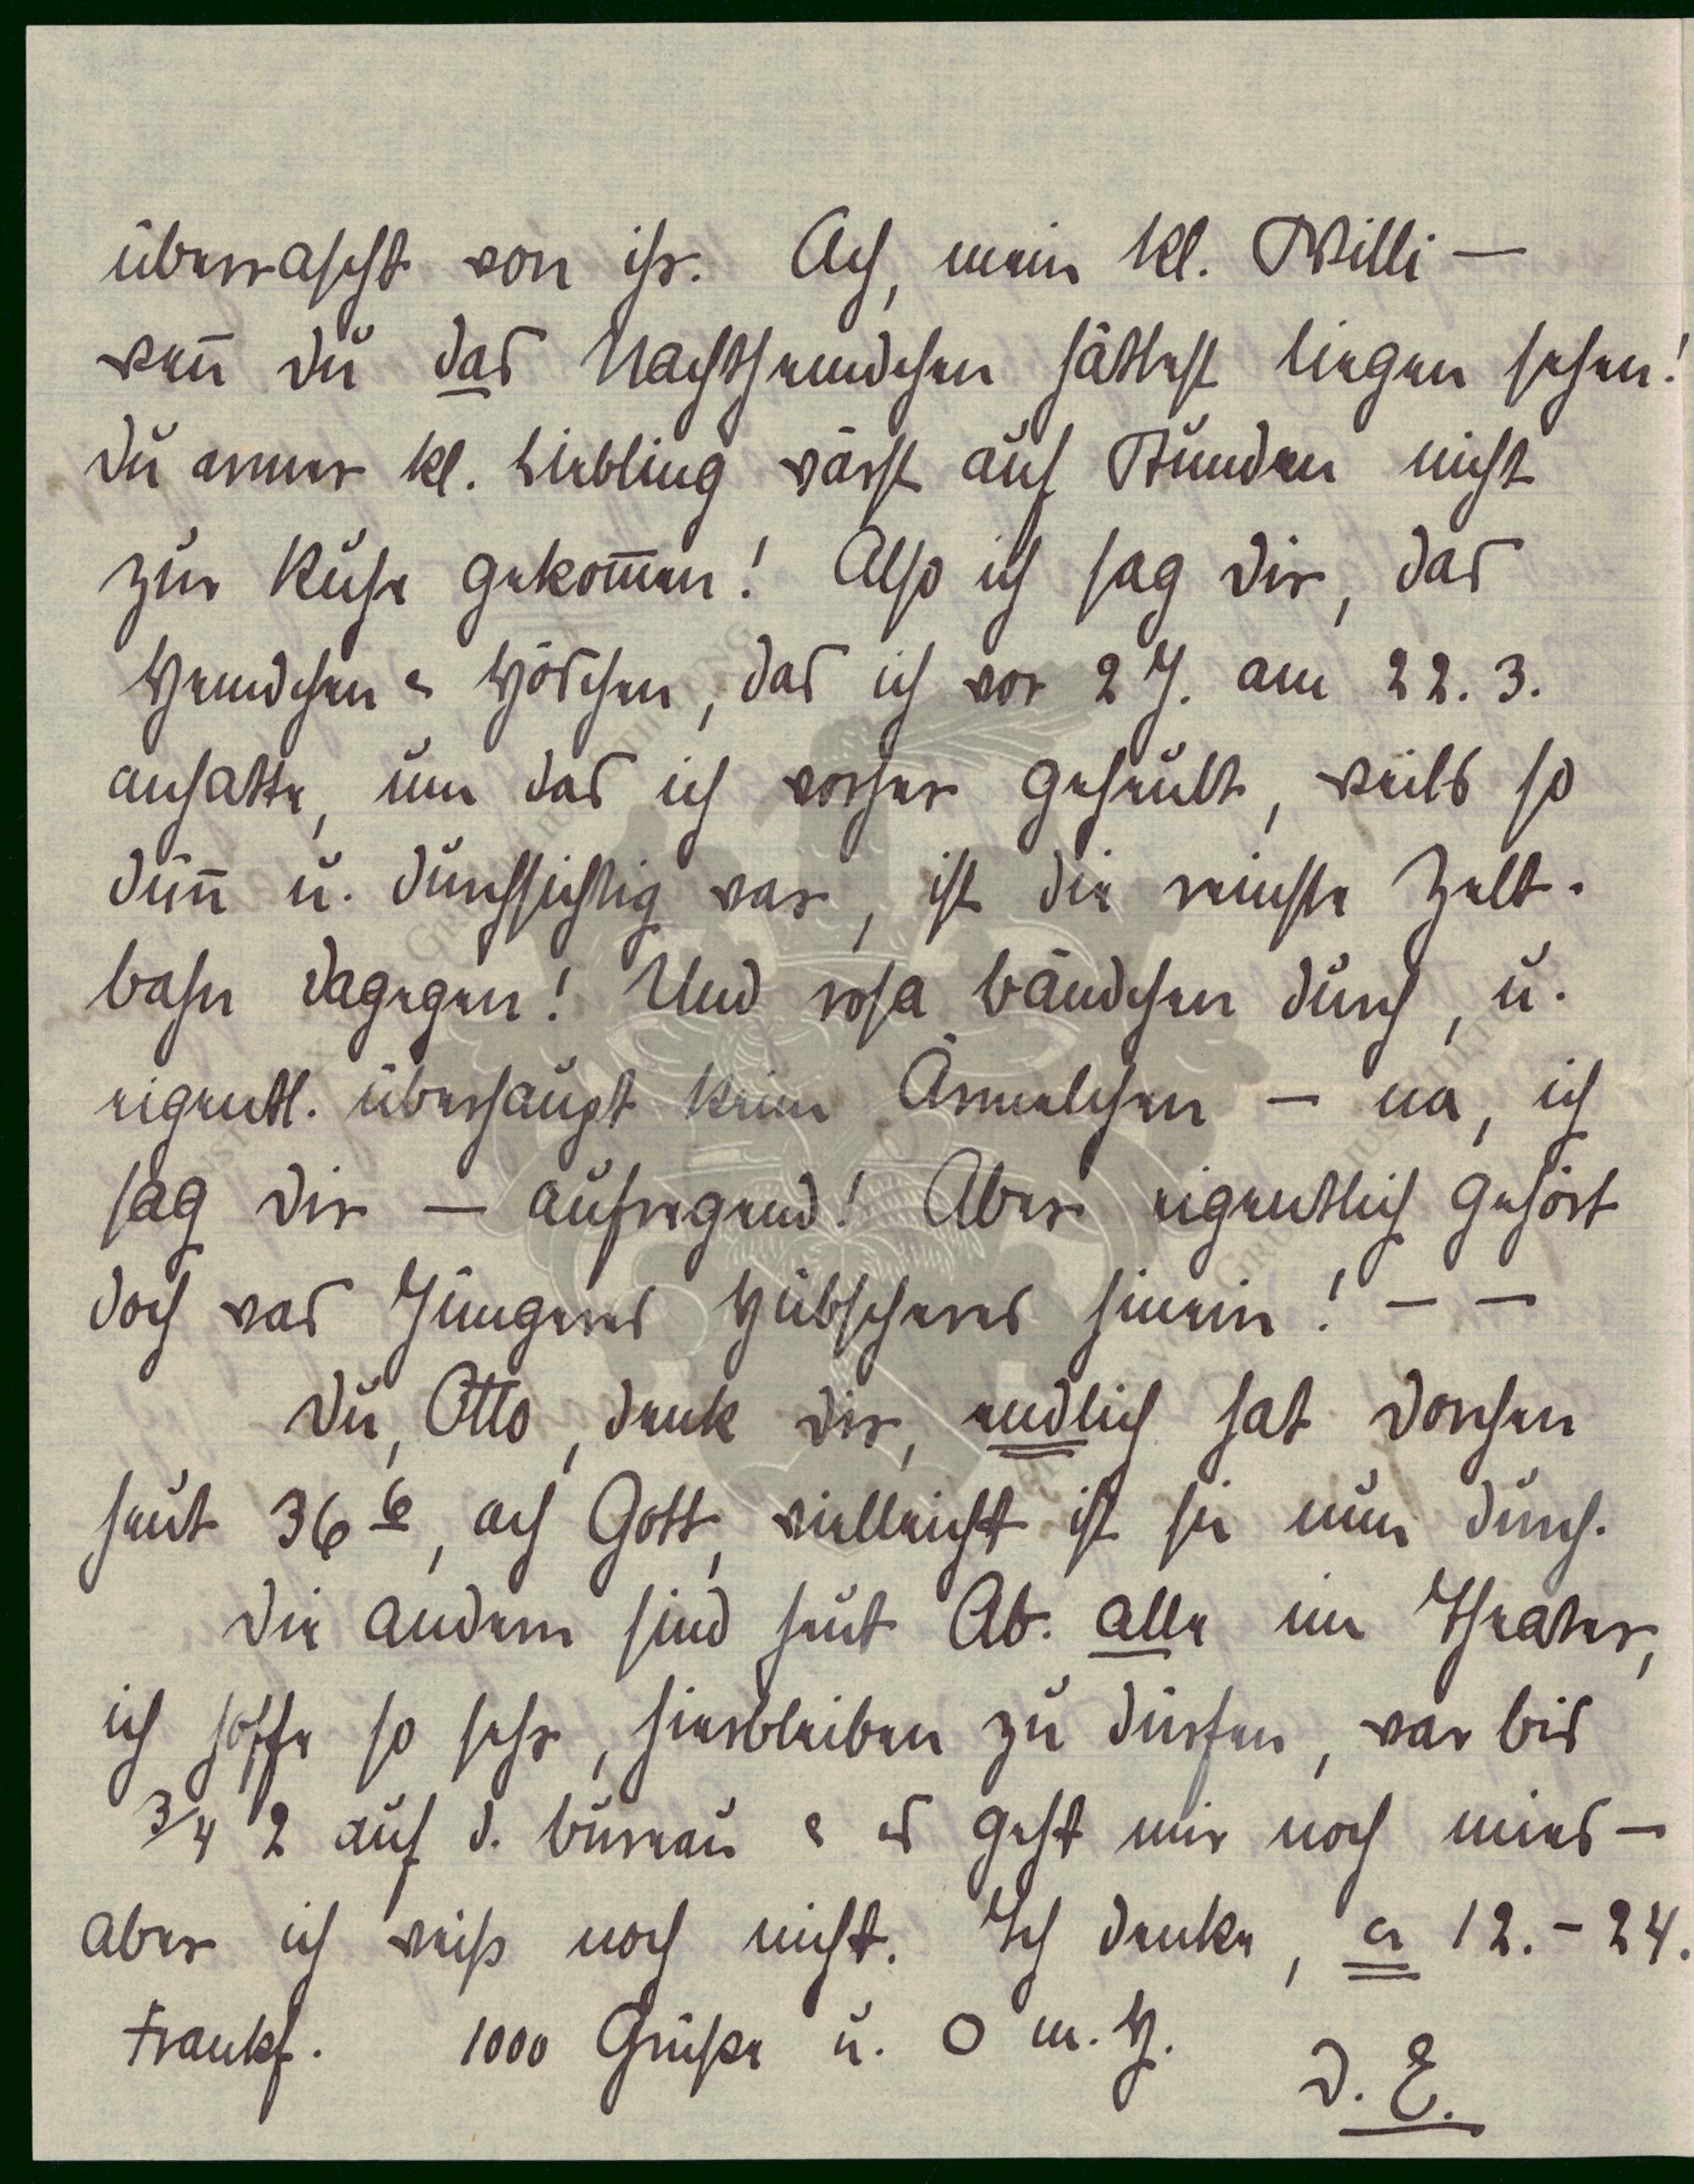 überrascht von ihr. Ach, mein kl. Willi —
wen̄ du das Nachthemdchen hättest liegen sehen!
Du armer kl. Liebling wärst auf Stunden nicht
zur Ruhe gekom̄en! Also ich sag dir, das
Hemdchen & Höschen, das ich vor 2 J. am 22. 3.
anhatte, um das ich vorher geheult, weils so
dün̄ u. durchsichtig war, ist die reinste Zelt-
bahn dagegen! Und rosa Bändchen durch, u.
eigentl. überhaupt keine Ärmelchen — na, ich
sag dir — aufregend! Aber eigentlich gehört
doch was Jüngeres Hübscheres hinein! — —
Du, Otto, denk dir, endlich hat Dorchen
heut 36 6, ach Gott, vielleicht ist sie nun durch.
Die andern sind heut Ab. alle im Theater,
ich hoffe so sehr, hierbleiben zu dürfen, war bis
3/4 2 auf d. Büreau & es geht mir noch mies —
aber ich weiß noch nicht. Ich denke, 12. - 24.
Frankf. 1000 Grüße u. O m. H.
D. E.